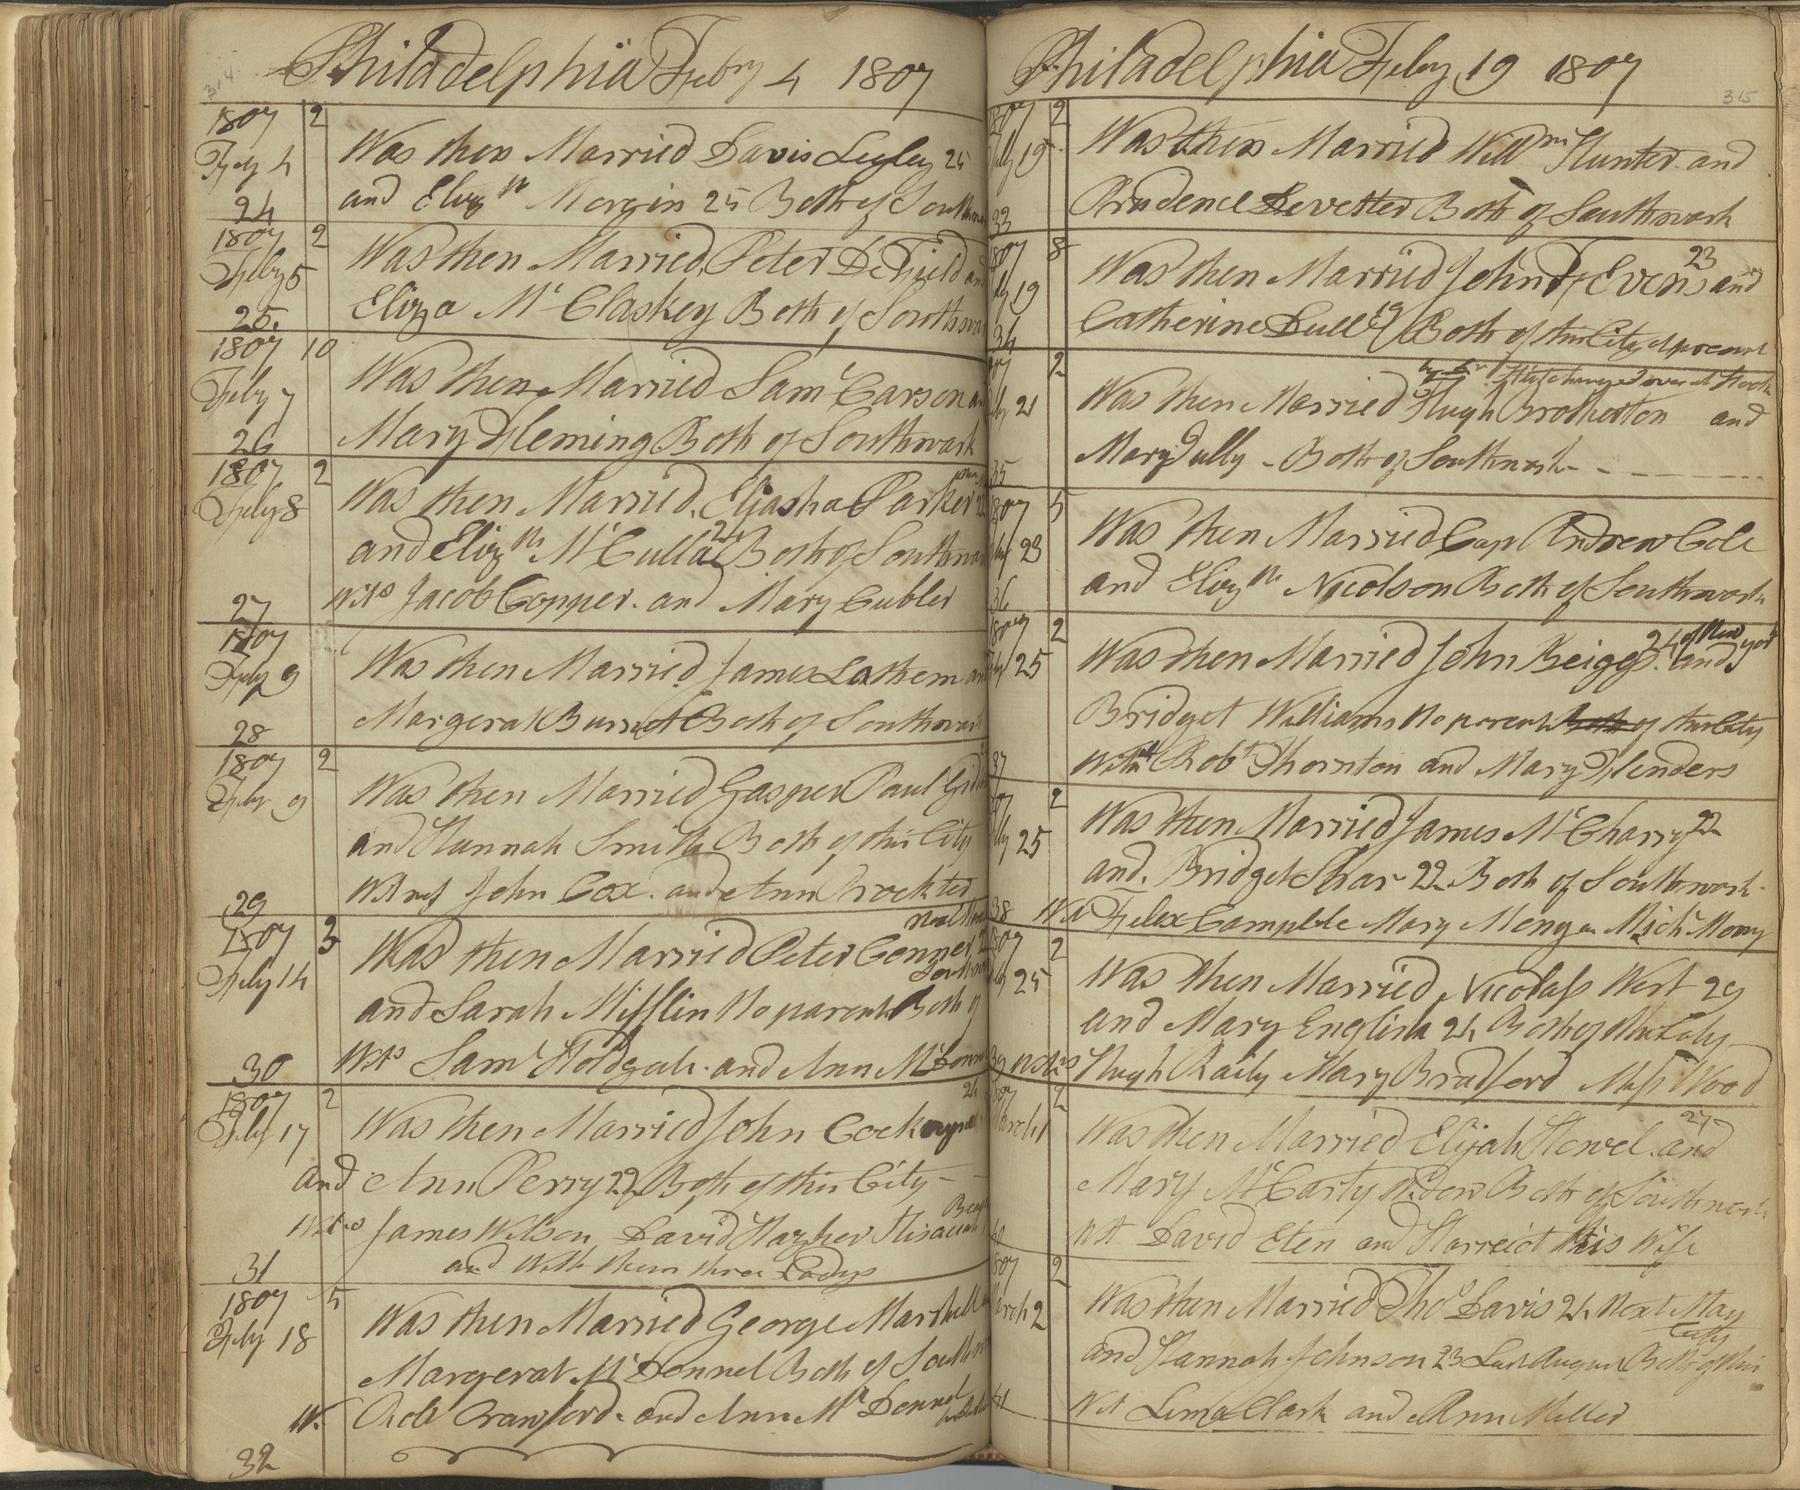 Philadelphia Feby 4 1807
314
1807 2
Feby 4 Was then Married Davis Legley 25
and Eliz th Morgin 25 Both of Southwa
24
1807 2
Feby 5 Was then Married Peter DeField and
Eliza Mc Claskey Both of Southwa
25
1807 10
Feby 7 Was then Married Saml Carson an
Mary Fleming Both of Southwark
26
1807 2
Feby 8 Was then Married Eliasha Parker
and Eliz th Mc Culla 24 Both of Southwa
Wits Jacob Copper and Mary Cubler
27
1807
Feby 9 Was then Married James Lathem an
Margerat Burnet Both of Southwark
28
1807 2
Feby 9 Was then Married Gasper Paul
and Hannah Smith Both of this City
Witnes John Cox and Ann Brockted
29
1807 3
Feby 14 Was then Married Peter Conner
and Sarah Mifflin No parents Both of
Wits Saml Holdgate and Ann Mc
30
1807 2
Feby 17 Was then Married John Cockayne
24
and Ann Perry 22 Both of this City
Wits James Wilson David
and with them three Ladys
31
1807 5
Feby 18 Was then Married George Marshell
Margerat Mc Donnel Both of Southw
W. Crawford and Ann Mc Donnel
32
Philadelphia Feby 19 1807
315
1807 2
Feby 19 Was then Married Willm Hunter and
Prudence Levetter Both of Southwark
33
1807 8
Feby 19 Was then Married John F Evens 23 and
Catherine Dull 19 Both of this City at present
34
1807 2
Feby 21 Was then Married Hugh Brotherton and
Mary Dully - Both of Southwark - - - -
35
1807 5
Feby 23 Was then Married Cap Andrew Cole
and Eliz th Nicolson Both of Southwark
36
1807 2
Feby 25 Was then Married John Beiggs 24 of New york and
Bridget Williams No parents Both of this City
Witn Robt Thornton and Mary Flenders
37
1807 2
Feby 25 Was then Married James Mc Charry 22
and Bridget Shar 22 Both of Southwark
38 Wit Felix Campble Mary Mongan Mich Mony
1807 2
Feby 25 Was then Married Nicolass West 29
and Mary English 24 Both of this City
39 Wits Hugh Raily Mary Bradford Miss Wood
1807 2
March 1 Was then Married Elijah Howel 27 and
Mary Mc Carty Widow Both of Southwark
Wit David Eten and Harreiot his Wife
40
1807 2
March 2 Was then Married Thos Davis 21 Next May
and Hannah Johnson 23 Last August Both of this City
Wit Lima Clark and Ann Miller
41